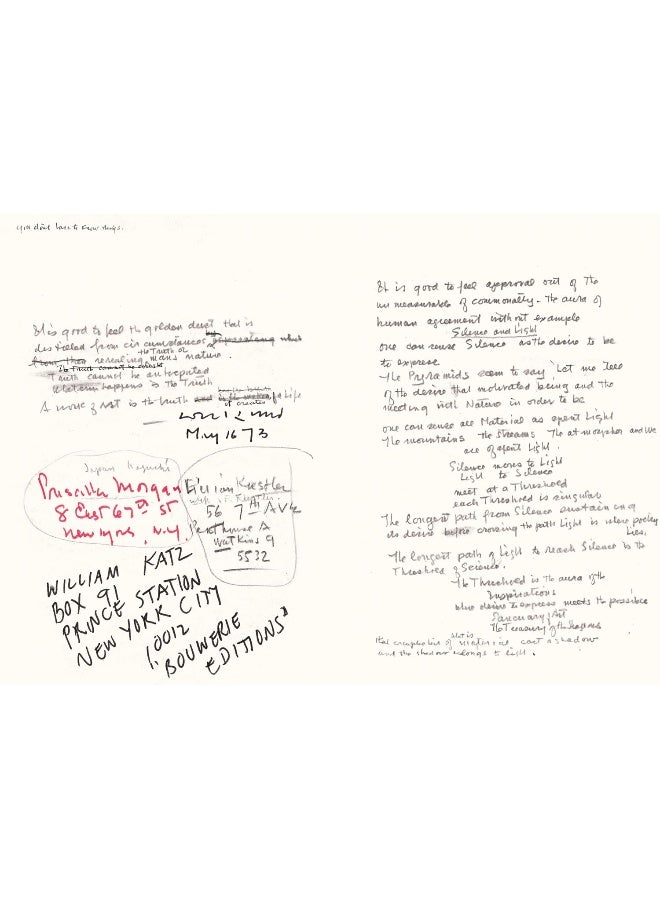 you don't have to know things.
It is good to feel the golden dust that is
destilled from circumstances
the Truth of
revealing mans nature.
the Truth cannot be
Truth cannot be anticipated
happens is the Truth
A work of art is the truth of a Life
May 16 73
Japan Noguchi
Priscilla Morgan
8 East 67th St
New York, N.Y.
Lilian Kiesler
56 7th AVE
Penthouse A
Watkins 9
5532
WILLIAM KATZ
BOX 91
PRINCE STATION
NEW YORK CITY
10012
"BOUWERIE
EDITIONS"
It is good to feel approval out of the
un measurable of commonalty - the aura of
human agreement without example
Silence and Light
one can sense Silence as the desire to be
to express
The Pyramids seem to say 'Let me Tell
of the desire that motivated being and the
meeting with Nature in order to be
one can sense all Material as spent Light
The mountains the streams The atmosphere and We
are of spent Light.
Silence moves to Light
Light to Silence
meet at a Threshold
each Threshold is singular
The longest path from Silence sustaining
its desire before crossing the path Light is where poetry
lies.
The longest path of Light to reach Silence is the
Threshold of Science.
The Threshold is the aura of the
Inspirations
where desire to express meets the possible
Sanctuary of Art
the Treasury of the shadows
that is
material cast a shadow
and the shadow belongs to light.